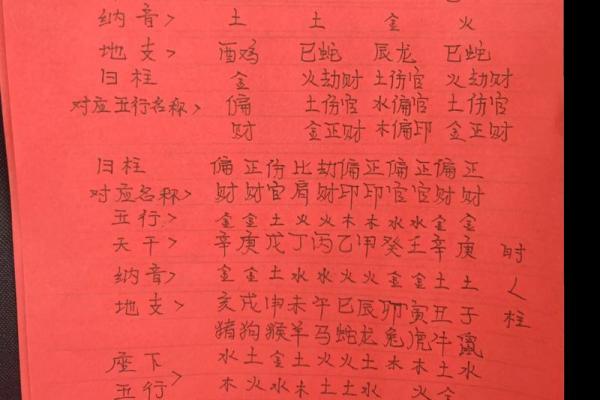 纳音> 土 土 金 火
地支> 酉鸡 巳蛇 辰龙 巳蛇
日柱 金 火劫财 土伤官 火劫财
对应五行名称> 偏 土伤官 水偏官 土伤官
财 金正财 木偏印 金正财
日柱 偏 正 伤 比 劫 偏 正 偏 正 偏 正
对应名称> 财 财 官 肩 财 印 印 官 官 财 财
五行> 金 金 土 火 火 木 木 水 水 金 金
天干> 辛 庚 戊 丁 丙 乙 甲 癸 壬 辛 庚
时
纳音> 金 金 土 水 水 火 火 金 金 土 土
地支> 亥 戌 申 未 午 巳 辰 卯 寅 丑 子
柱
猪 狗 猴 羊 马 蛇 龙 兔 虎 牛 鼠
座下 水 土 金 土 火 火 土 木 木 土 水
五行> 木 火 水 木 土 土 水 火 金